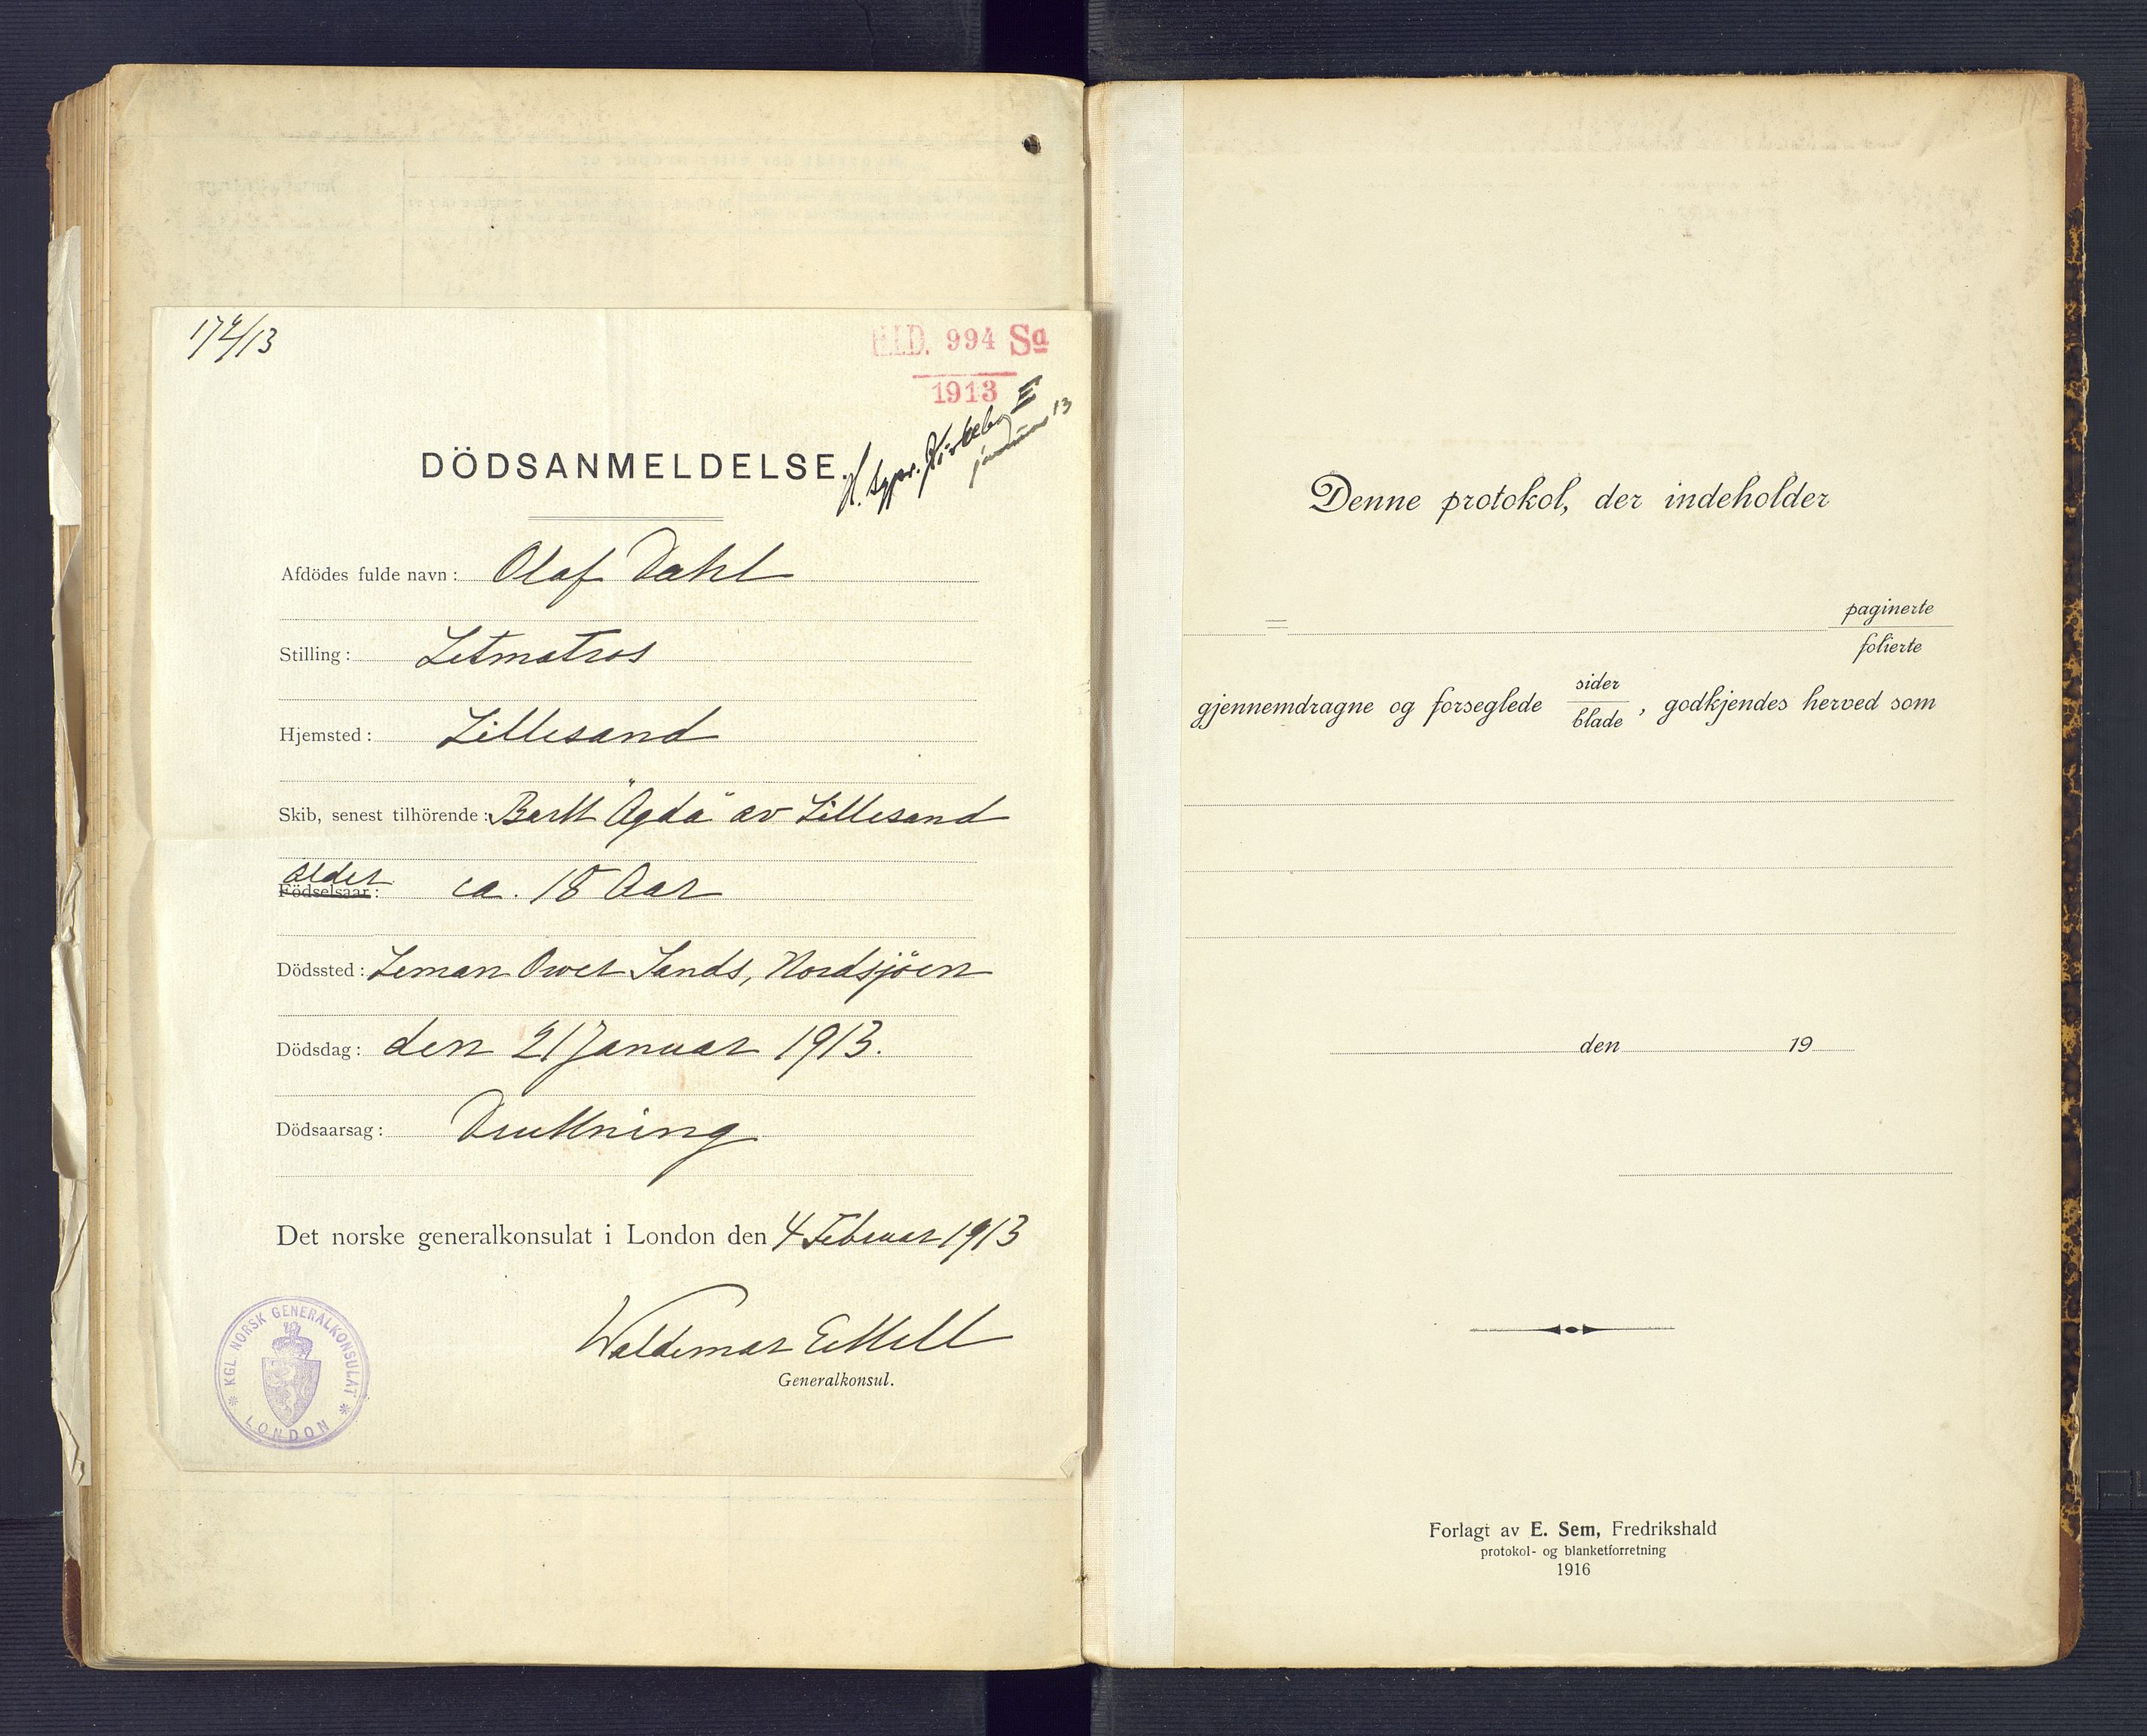 17/2/13
994 Sa
1913
DÖDSANMELDELSE.
Kirkebog II
januar 13
Afdödes fulde navn: Olaf Dahl
Stilling: Letmatros
Hjemsted: Lillesand
Skib, senest tilhörende: Bark "Agda" av Lillesand
Alder
Födselsaar: ca. 18 Aar
Dödssted: Leman Ower Sands, Nordsjöen
Dödsdag: den 21 Januar 1913.
Dödsaarsag: Drukning
Det norske generalkonsulat i London den 4 Februar 1913
Waldemar Eckell
Generalkonsul.
KGL NORSK GENERALKONSULAT
* LONDON *
Denne protokol, der indeholder
=
paginerte
folierte
gjennemdragne og forseglede sider
blade, godkjendes herved som
den 19
Forlagt av E. Sem, Fredrikshald
protokol- og blanketforretning
1916